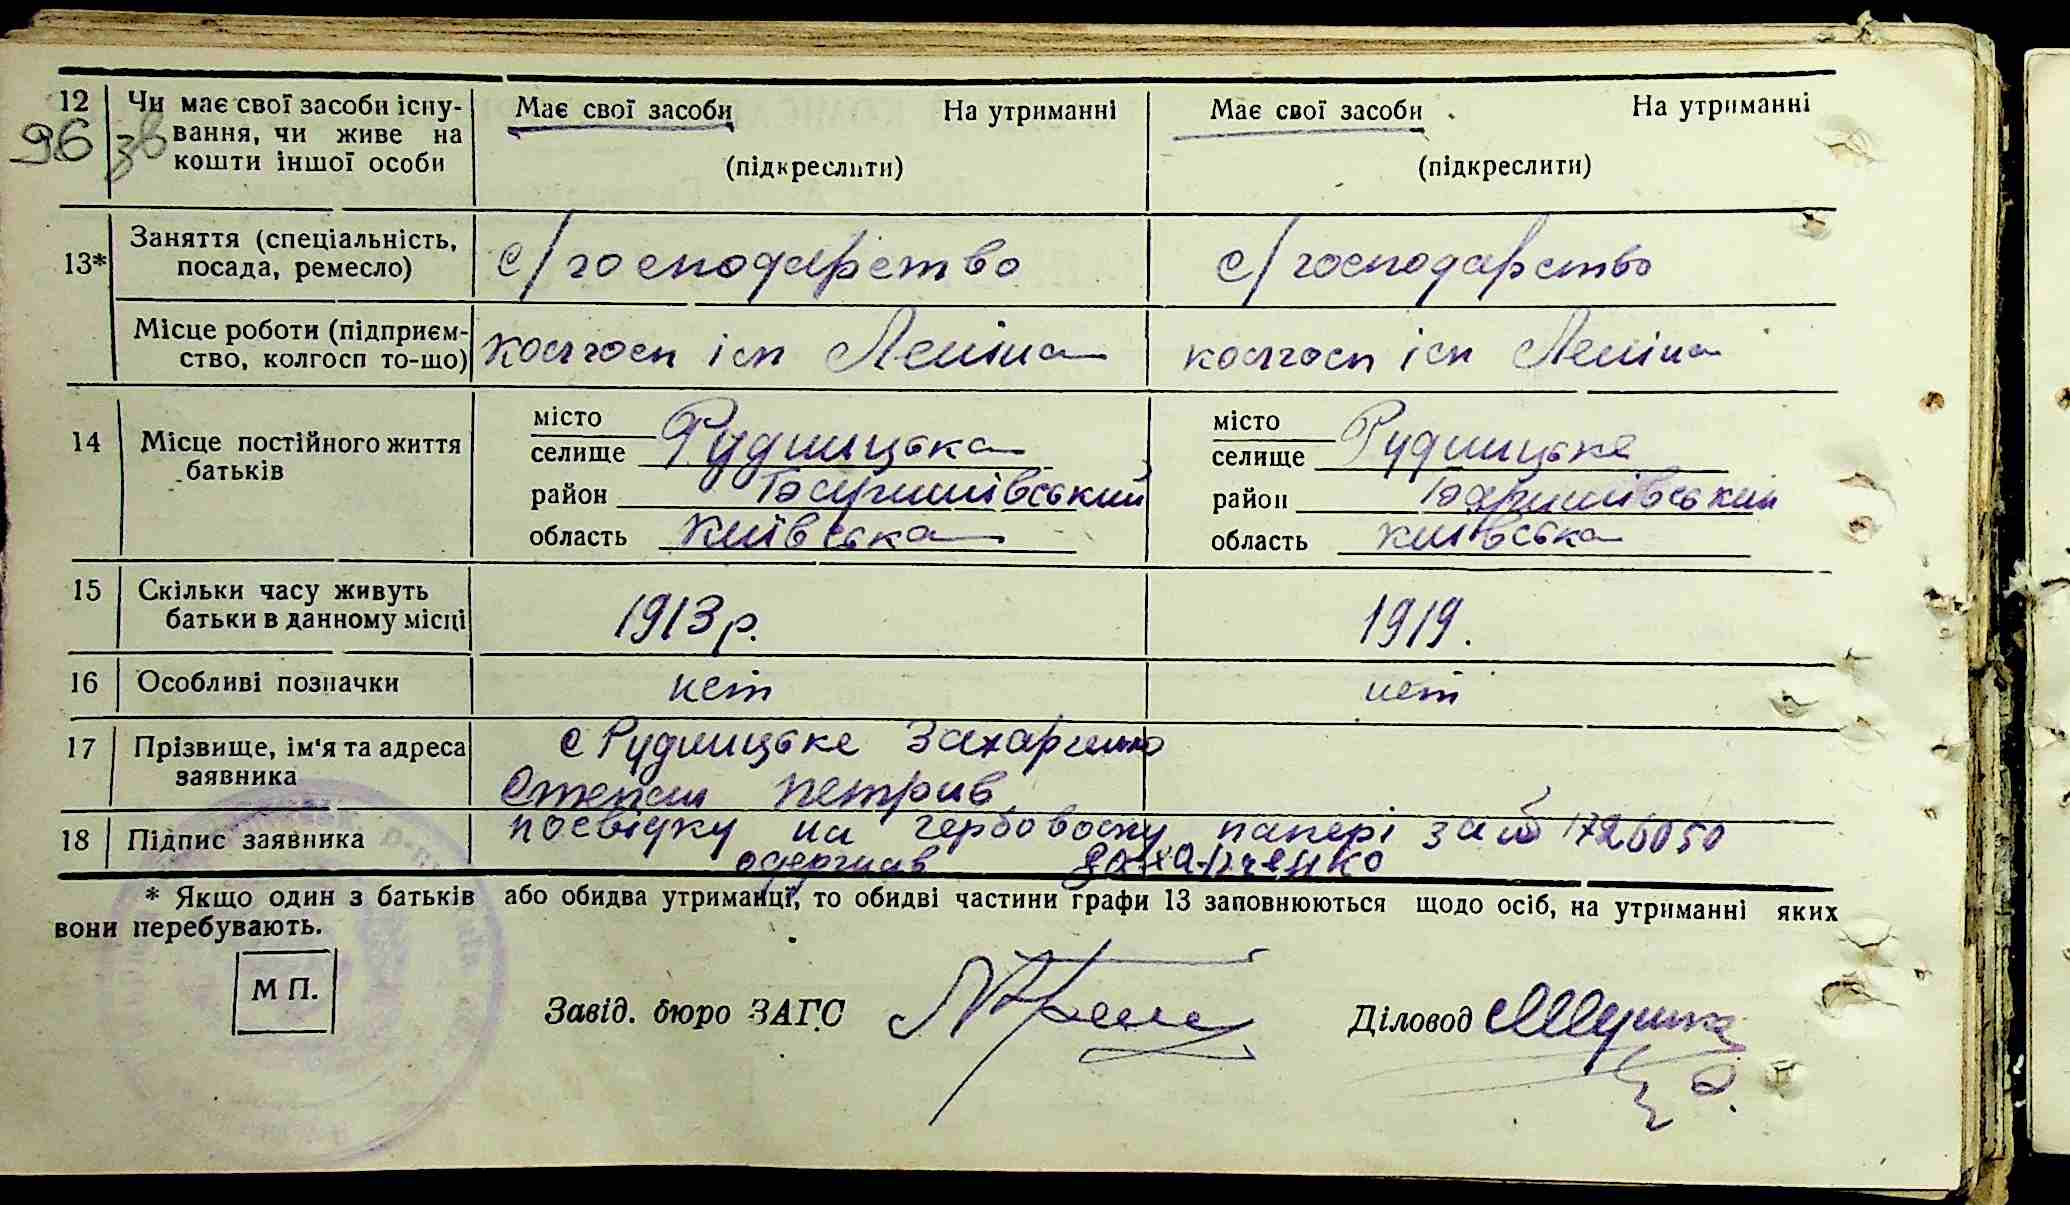 12 Чи має свої засоби існу-
вання, чи живе на
кошти іншої особи
96 зв
Має свої засоби На утриманні
(підкреслити)
Має свої засоби На утриманні
(підкреслити)
13* Заняття (спеціальність,
посада, ремесло)
с/господарство
с/господарство
Місце роботи (підприєм-
ство, колгосп то-що)
колгосп ім Леніна
колгосп ім Леніна
14 Місце постійного життя
батьків
місто
селище Рудницька
район Баришівський
область Київська
місто
селище Рудницьке
район Баришівський
область Київська
15 Скільки часу живуть
батьки в данному місці
1913 р.
1919.
16 Особливі позначки
нет
нет
17 Прізвище, ім'я та адреса
заявника
с Рудницьке Захарченко
Степан Петрив
18 Підпис заявника
посвідку на гербовому папері за №
одержав Захарченко
* Якщо один з батьків або обидва утриманці, то обидві частини графи 13 заповнюються щодо осіб, на утриманні яких
вони перебувають.
М П.
Завід. бюро ЗАГС
Діловод